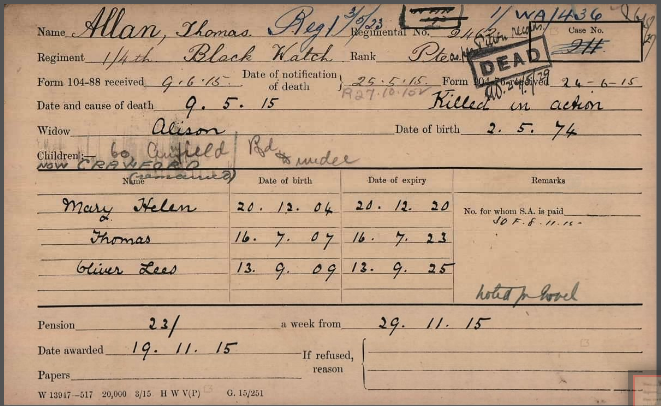 Name Allan, Thomas. Regimental No. 1/WA/436
Case No.
Regiment 1/4th Black Watch Rank Pte
DEAD
Form 104-88 received 9.6.15. Date of notification of death 25.5.15. Form received 24-6-15
R27.10.15
Date and cause of death 9.5.15 Killed in action
Widow Alison Date of birth 2.5.74
Children:—
NOW CRAWFORD
(remarried)
Name Date of birth Date of expiry Remarks
Mary Helen 20.12.04 20.12.20
No. for whom S.A. is paid
Thomas 16.7.07 16.7.23
Oliver Lees 13.9.09 13.9.25
Pension 23/ a week from 29.11.15
Date awarded 19.11.15 If refused, reason
Papers
W 13947—517 20,000 3/15 H W V(P) G. 15/251